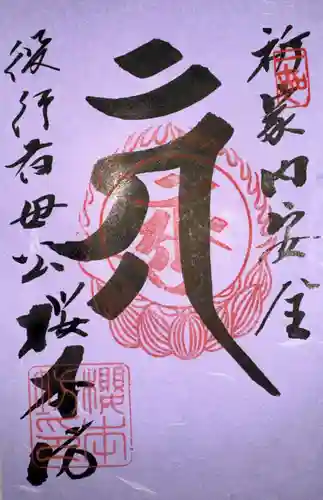 祈家内安全
役行者母公
桜本坊
櫻本
坊印